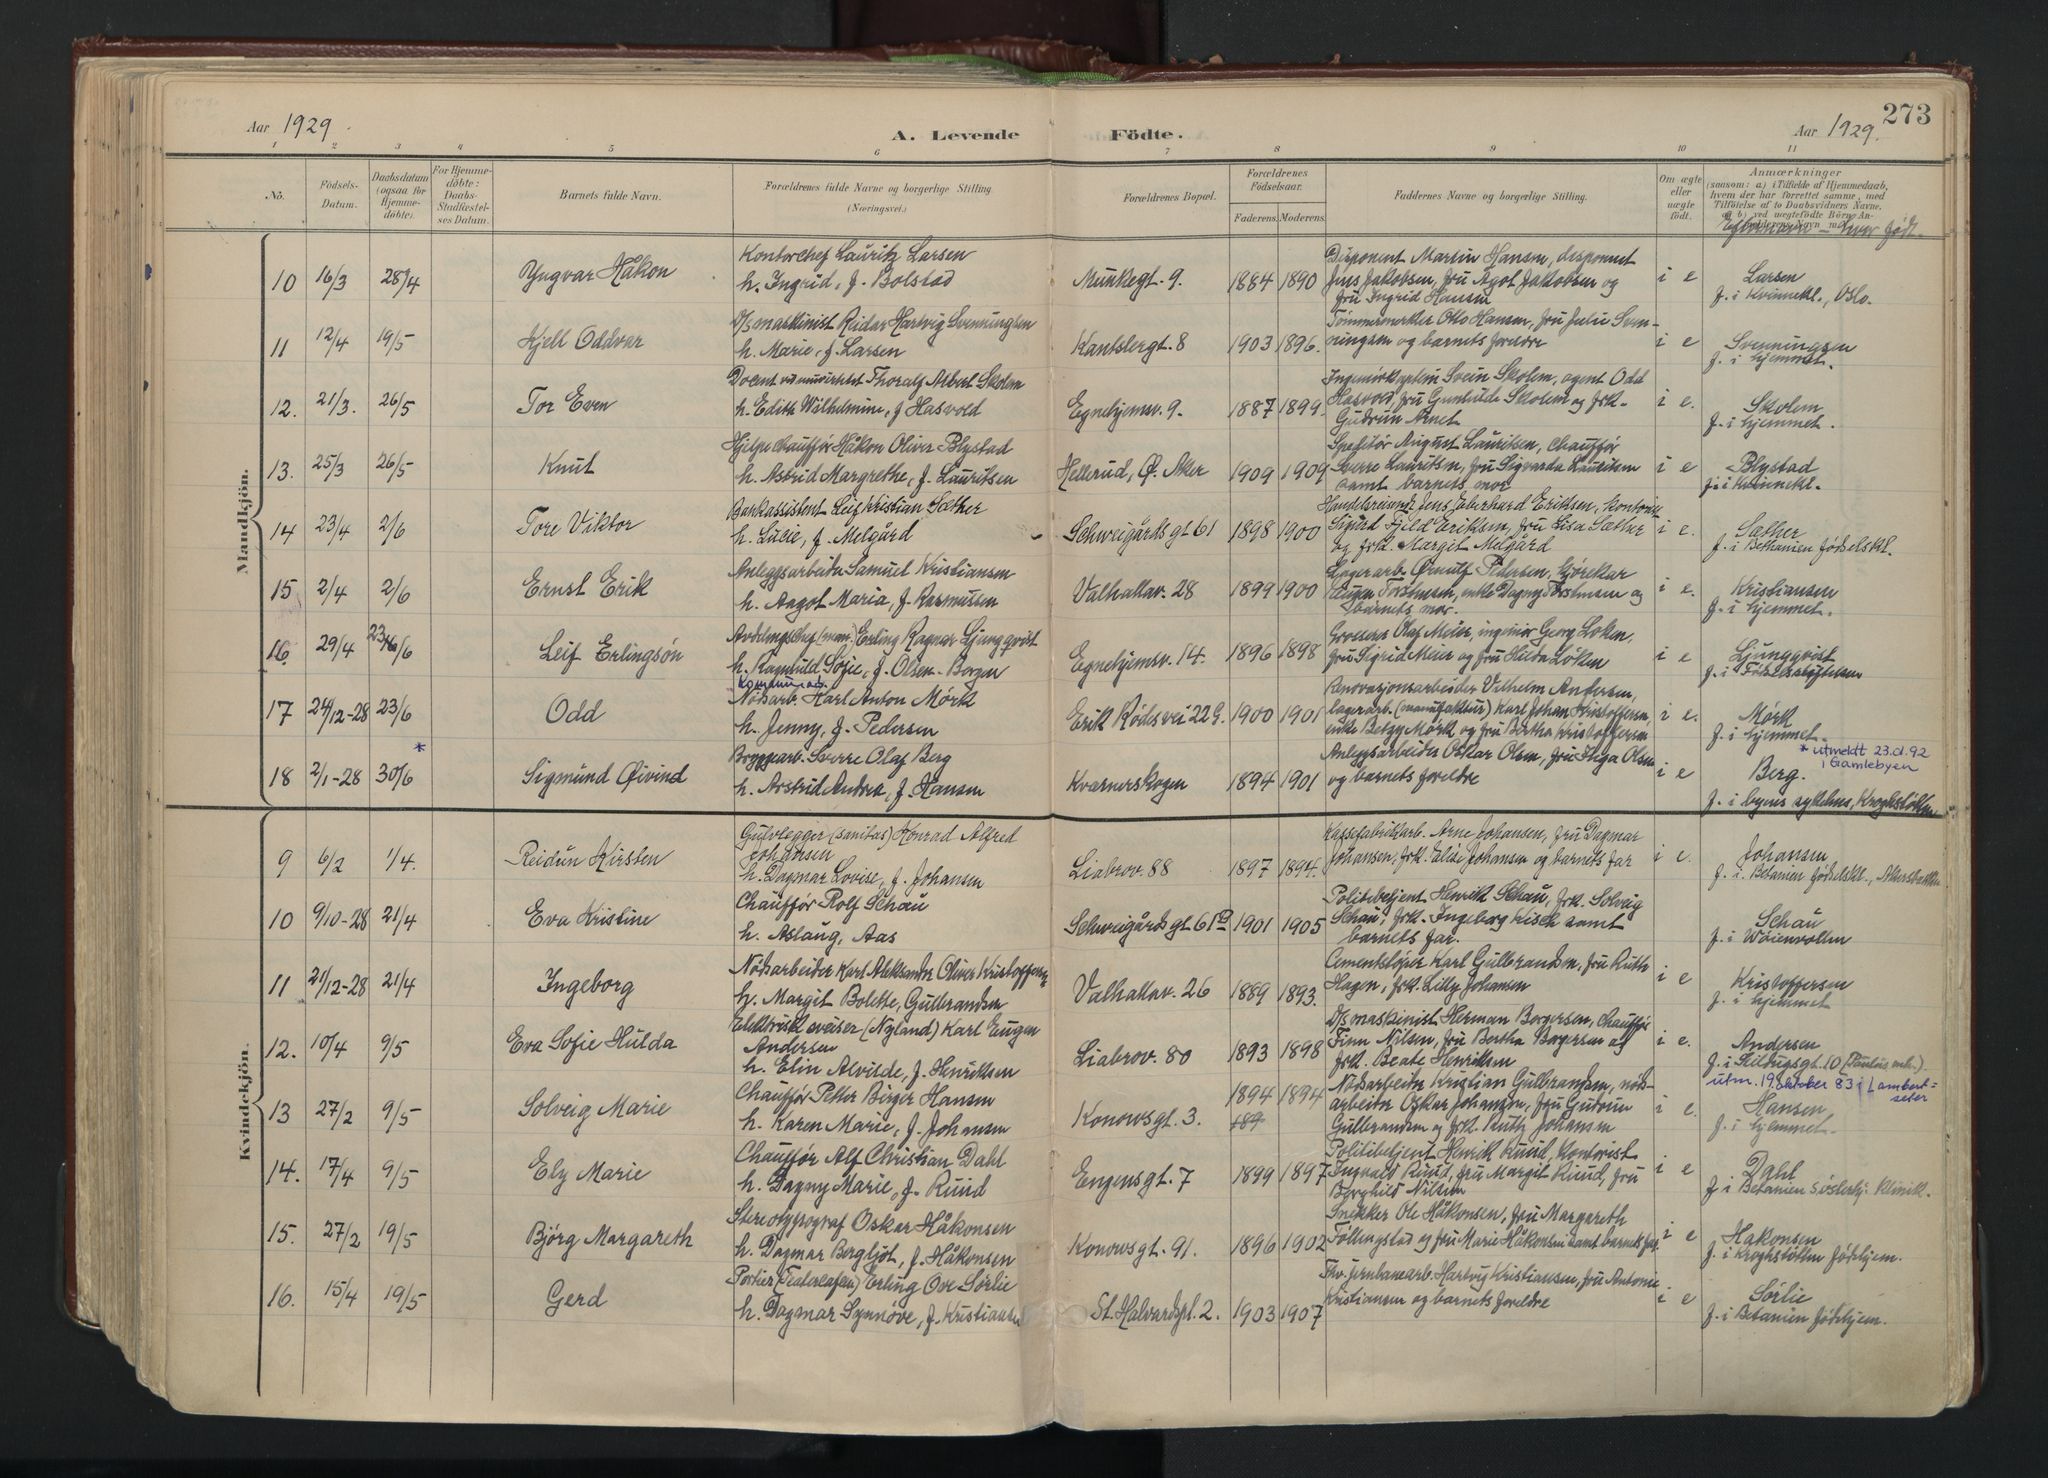 273
Aar 1929.
A. Levende Födte.
Aar 1929.
1 2 3 4 5 6 7 8 9 10 11
No. Födsels-Datum. Daabsdatum (ogsaa för Hjemme-döbte). For Hjemme-döbte: Daabs-Stadfæstelses Datum. Barnets fulde Navn. Forældrenes fulde Navne og borgerlige Stilling. (Næringsvei.) Forældrenes Bopæl. Forældrenes Födselsaar. Faderens. Moderens. Faddernes Navne og borgerlige Stilling. Om ægte eller uægte födt. Anmærkninger
(saasom: a) i Tilfælde af Hjemmedaab, hvem der har forrettet samme, med Tilföielse af to Daabsvidners Navne,
Efternavn – hvor født.
Mandkjön.
10 16/3 28/4 Yngvar Håkon
Kontorchef Lauritz Larsen
h. Ingrid, f. Bolstad
Munkegt. 9. 1884 1890
Disponent Martin Hansen, disponent
Jens Jakobsen, fru Agot Jakobsen og
fru Ingrid Hansen
i e Larsen
f. i Kvinnekl., Oslo.
11 12/4 19/5 Kjell Oddvar
D/s maskinist Reidar Hartvig Svenningsen
h. Marie, f. Larsen
Kantslergt. 8 1903 1896.
Tømmermerker Otto Hansen, fru Julie Sven-
ningsen og barnets foreldre
i e Svenningsen
f. i hjemmet.
12. 21/3. 26/5 Tor Even
Docent ved universitetet Thoralf Albert Skolem
h. Edith Wilhelmine, f. Hasvold
Egnehjemsv. 9. 1887 1899.
Ingeniørkaptein Svein Skolem, agent Odd
Hasvold, fru Gunhilde Skolem og frk.
Gudrun Arnet
i e. Skolem
f. i hjemmet.
13. 25/3 26/5 Knut
Hjelpechauffør Håkon Oliver Blystad
h. Astrid Margrethe, f. Lauritsen
Hellerud, Ø. Aker 1909 1909
Speditør August Lauritsen, chauffør
Sverre Lauritsen, fru Sigvarda Lauritsen
samt barnets mor
i e Blystad
f. i Kvinnekl.
14 23/4 2/6 Tore Viktor
Bankassistent Leif Kristian Sæther
h. Lucie, f. Melgård
Schweigårdsgt 61 1898 1900
Handelsreisende Jens Eberhard Eriksen, kontorist
Sigurd Fjeld Eriksen, fru Lisa Sæther
og frk. Margit Melgård
i e. Sæther
f. i Bethanien fødselskl.
15 2/4 2/6 Ernst Erik
Anleggsarbeider Samuel Kristiansen
h. Aagot Maria, f. Rasmussen
Valhallav. 28 1899 1900
Lagerarb. Ørnulf Pedersen,
barnets mor.
i e. Kristiansen
f. i hjemmet.
16. 29/4 23/6 Leif Erlingsøn
Avdelingschef (man.) Erling Ragnar Ljungqvist
h. Ragnhild Sofie, f. Olsen-Borgen
Egnehjemsv. 14. 1896 1898
Grosserer Olaf Meier, ingeniør Georg Løken,
fru Sigrid Meier og fru Hilda Løken
i e Ljungqvist
f. i Fødselsstiftelsen
17 24/12-28 23/6 Odd
Kommunearb.
Nødsarb. Karl Anton Mörk
h. Jenny, f. Pedersen
Erik Rødes vei 22 G. 1900 1901
Renovasjonsarbeider Vilhelm Andersen,
lagerarb. (manufaktur) Karl Johan Kristoffersen,
enke Betzy Mörk og fru Bertha Kristoffersen
i e. Mörk
f. i hjemmet.
* utmeldt 23.d.92
i Gamlebyen
*
18 2/1-28 30/6 Sigmund Øivind
Bryggearb. Sverre Olaf Berg
h. Astrid Andrea, f. Hansen
Kværnerskogen 1894 1901
Anleggsarbeider Oskar Olsen, fru Helga Olsen
og barnets foreldre
i e Berg.
f. i byens sykehus, Kroghstøtten
Kvindekjön.
9 6/2 1/4. Reidun Kirsten
Gulvlegger (sanitas) Konrad Alfred
Johansen
h. Dagmar Lovise, f. Johansen
Liabrov. 88 1897 1894.
Kassefabrikarb. Arne Johansen, fru Dagmar
Johansen, frk. Elise Johansen og barnets far
i e. Johansen
f. i. Betanien fødselskl., Akersbakken
10 9/10-28 21/4 Eva Kristine
Chauffør Rolf Schau
h. Aslaug, Aas
Schweigårdsgt 61 B 1901 1905
Politibetjent Henrik Schau, frk. Solveig
Schau, frk. Ingeborg Kisch samt
barnets far.
Schau
f. i Wøienvollen
11 21/12-28 21/4 Ingeborg
Nødsarbeider Karl Aleksander Oliver Kristoffersen
h. Margit Bolette, Gulbrandsen
Valhallav. 26 1889 1893.
Cementstøper Karl Gulbrandsen, fru Ruth
Hagen, frk. Lilly Johansen
i e Kristoffersen
f. i hjemmet
12. 10/4 9/5 Eva Sofie Hulda
Elektrisk sveiser (Nyland) Karl Eugen
Andersen
h. Elin Alvilde, f. Henriksen
Liabrov. 80 1893 1898
D/s maskinist Herman Borgersen, chauffør
Finn Nilsen, fru Bertha Borgersen og
frk. Beate Henriksen
i e. Andersen
f. i Seildugsgt. 10 (Paulus mh.).
utm. 19. oktober 83 i Lambert=
seter
13 27/2 9/5 Solveig Marie
Chauffør Petter Birger Hansen
h. Karen Marie, f. Johansen
Konowsgt. 3. 1894 1894
189
Nødsarbeider Kristian Gulbrandsen, nøds-
arbeider Oskar Johansen, fru Gudrun
Gulbrandsen og frk. Ruth Johansen
i e. Hansen
f. i hjemmet.
14. 17/4 9/5 Ely Marie
Chauffør Alf Christian Dahl
h. Dagny Marie, f. Ruud
Enggt. 7 1899 1897
Politibetjent Henrik Ruud, kontorist
Ingvald Ruud, fru Margit Ruud, fru
Borghild Nilsen
i e Dahl
f. i Betanien Søsterhj. klinik.
15. 27/2 19/5 Bjørg Margareth
Stereotypograf Oskar Håkonsen
h. Dagmar Bergljot, f. Håkonsen
Konowsgt. 91. 1896 1902
Snekker Ole Håkonsen, fru Margareth
Tollingstad og fru Marie Håkonsen samt barnets far.
i e Hakonsen
f. i Kroghstøtten fødehjem.
16. 15/4 19/5 Gerd
Portier (Teatercafeen) Erling Ove Sørlie
h. Dagmar Synnøve, f. Kristiansen
St. Halvardspl. 2. 1903 1907
Fhv. jernbanearb. Hartvig Kristiansen, fru Antonie
Kristiansen og barnets foreldre
i e Sørlie
f. i Betanien fødehjem.